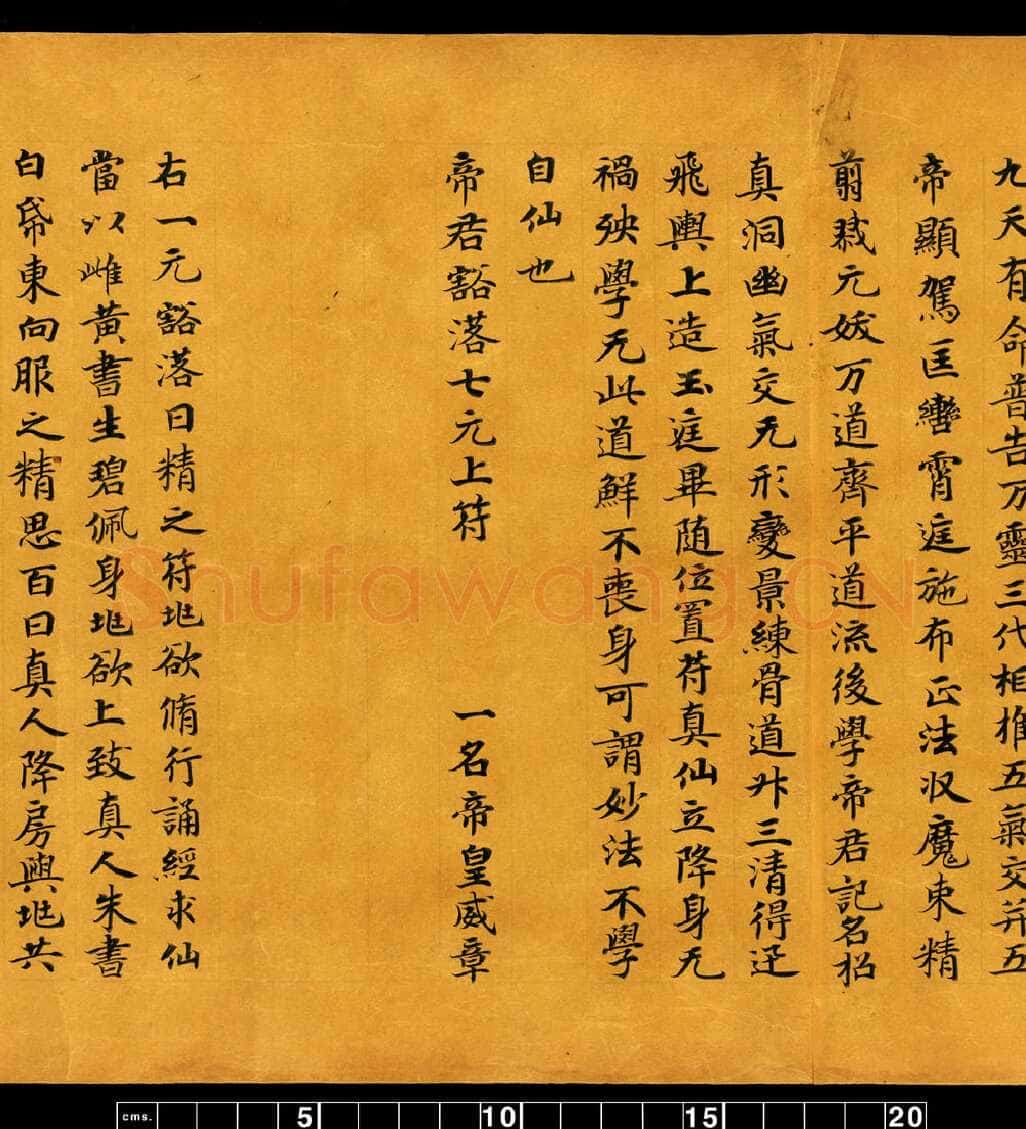 九天有命普告万靈三代相推五氣交并五
帝顯駕匡轡霄庭施布正法收魔束精
翦裁元妭万道齊平道流後學帝君記名招
真洞幽氣交无形變景練骨道升三清得迅
飛輿上造玉庭畢随位置苻真仙立降身无
禍殃學无此道鮮不喪身可謂妙法不學
自仙也
帝君豁落七元上苻 一名帝皇威章
右一元豁落日精之苻地欲脩行誦經求仙
當以雌黄書生碧佩身地欲上致真人朱書
白帋東向服之精思百日真人降房與地共
Shufawang.CN
cms. 5 10 15 20